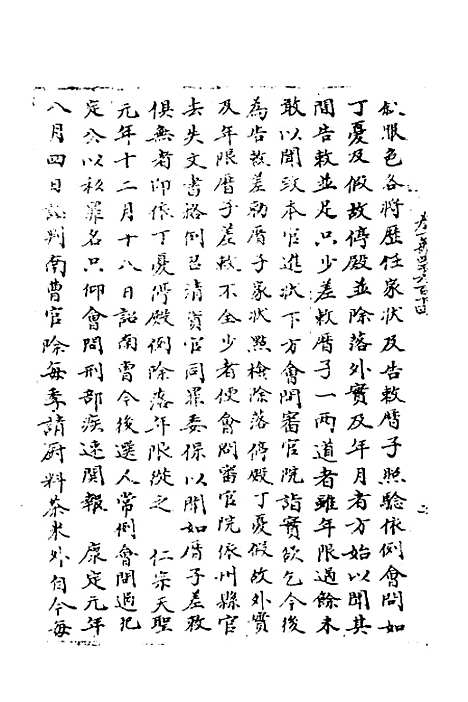 敘服色各將歷任家狀及告敕曆子照驗依例會問如
丁憂及假故停殿並除落外實及年月者方始以聞其
間告敕並足只少差敕曆子一兩道者雖年限過餘未
敢以聞致本官進狀下方會問審官院詣實欲乞今後
為告敕差勅曆子家狀點檢除落停殿丁憂假故外實
及年限曆子差敕不全少者便會問審官院依州縣官
去失文書格例召清資官同罪委保以聞如曆子差敕
俱無者即依丁憂停殿例除落年限從之 仁宗天聖
元年十二月十八日詔南曹今後選人常例會問過犯
定公以私罪名只仰會問刑部疾速關報 康定元年
八月四日詔判南曹官除每季請廚料茶米外自今每